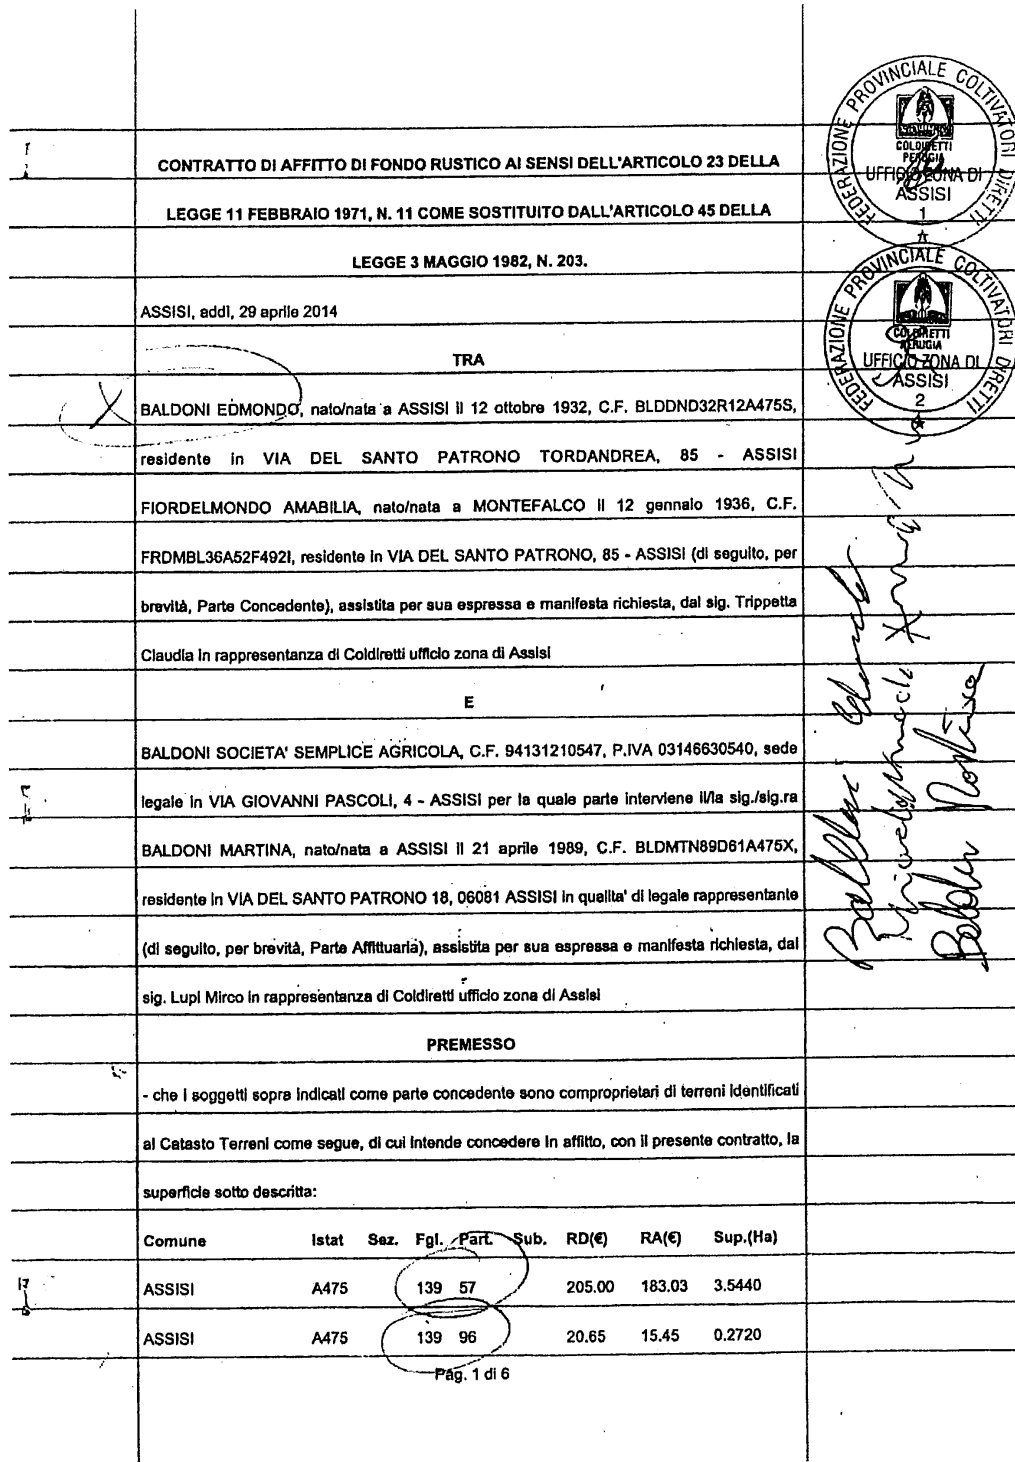 CONTRATTO DI AFFITTO DI FONDO RUSTICO AI SENSI DELL'ARTICOLO 23 DELLA
LEGGE 11 FEBBRAIO 1971, N. 11 COME SOSTITUITO DALL'ARTICOLO 45 DELLA
LEGGE 3 MAGGIO 1982, N. 203.
ASSISI, addì, 29 aprile 2014
TRA
BALDONI EDMONDO, nato/nata a ASSISI il 12 ottobre 1932, C.F. BLDDND32R12A475S,
residente in VIA DEL SANTO PATRONO TORDANDREA, 85 - ASSISI
FIORDELMONDO AMABILIA, nato/nata a MONTEFALCO il 12 gennaio 1936, C.F.
FRDMBL36A52F492I, residente in VIA DEL SANTO PATRONO, 85 - ASSISI (di seguito, per
brevità, Parte Concedente), assistita per sua espressa e manifesta richiesta, dal sig. Trippetta
Claudia in rappresentanza di Coldiretti ufficio zona di Assisi
E
BALDONI SOCIETA' SEMPLICE AGRICOLA, C.F. 94131210547, P.IVA 03146630540, sede
legale in VIA GIOVANNI PASCOLI, 4 - ASSISI per la quale parte interviene il/la sig./sig.ra
BALDONI MARTINA, nato/nata a ASSISI il 21 aprile 1989, C.F. BLDMTN89D61A475X,
residente in VIA DEL SANTO PATRONO 18, 06081 ASSISI in qualita' di legale rappresentante
(di seguito, per brevità, Parte Affittuaria), assistita per sua espressa e manifesta richiesta, dal
sig. Lupi Mirco in rappresentanza di Coldiretti ufficio zona di Assisi
PREMESSO
- che i soggetti sopra indicati come parte concedente sono comproprietari di terreni identificati
al Catasto Terreni come segue, di cui intende concedere in affitto, con il presente contratto, la
superficie sotto descritta:
Comune Istat Sez. Fgl. Part. Sub. RD(€) RA(€) Sup.(Ha)
ASSISI A475 139 57 205.00 183.03 3.5440
ASSISI A475 139 96 20.65 15.45 0.2720
Pág. 1 di 6
FEDERAZIONE PROVINCIALE COLTIVATORI DIRETTI
COLDIRETTI
PERUGIA
UFFICIO ZONA DI
ASSISI
1
FEDERAZIONE PROVINCIALE COLTIVATORI DIRETTI
COLDIRETTI
PERUGIA
UFFICIO ZONA DI
ASSISI
2
Baldoni
Baldoni Martina